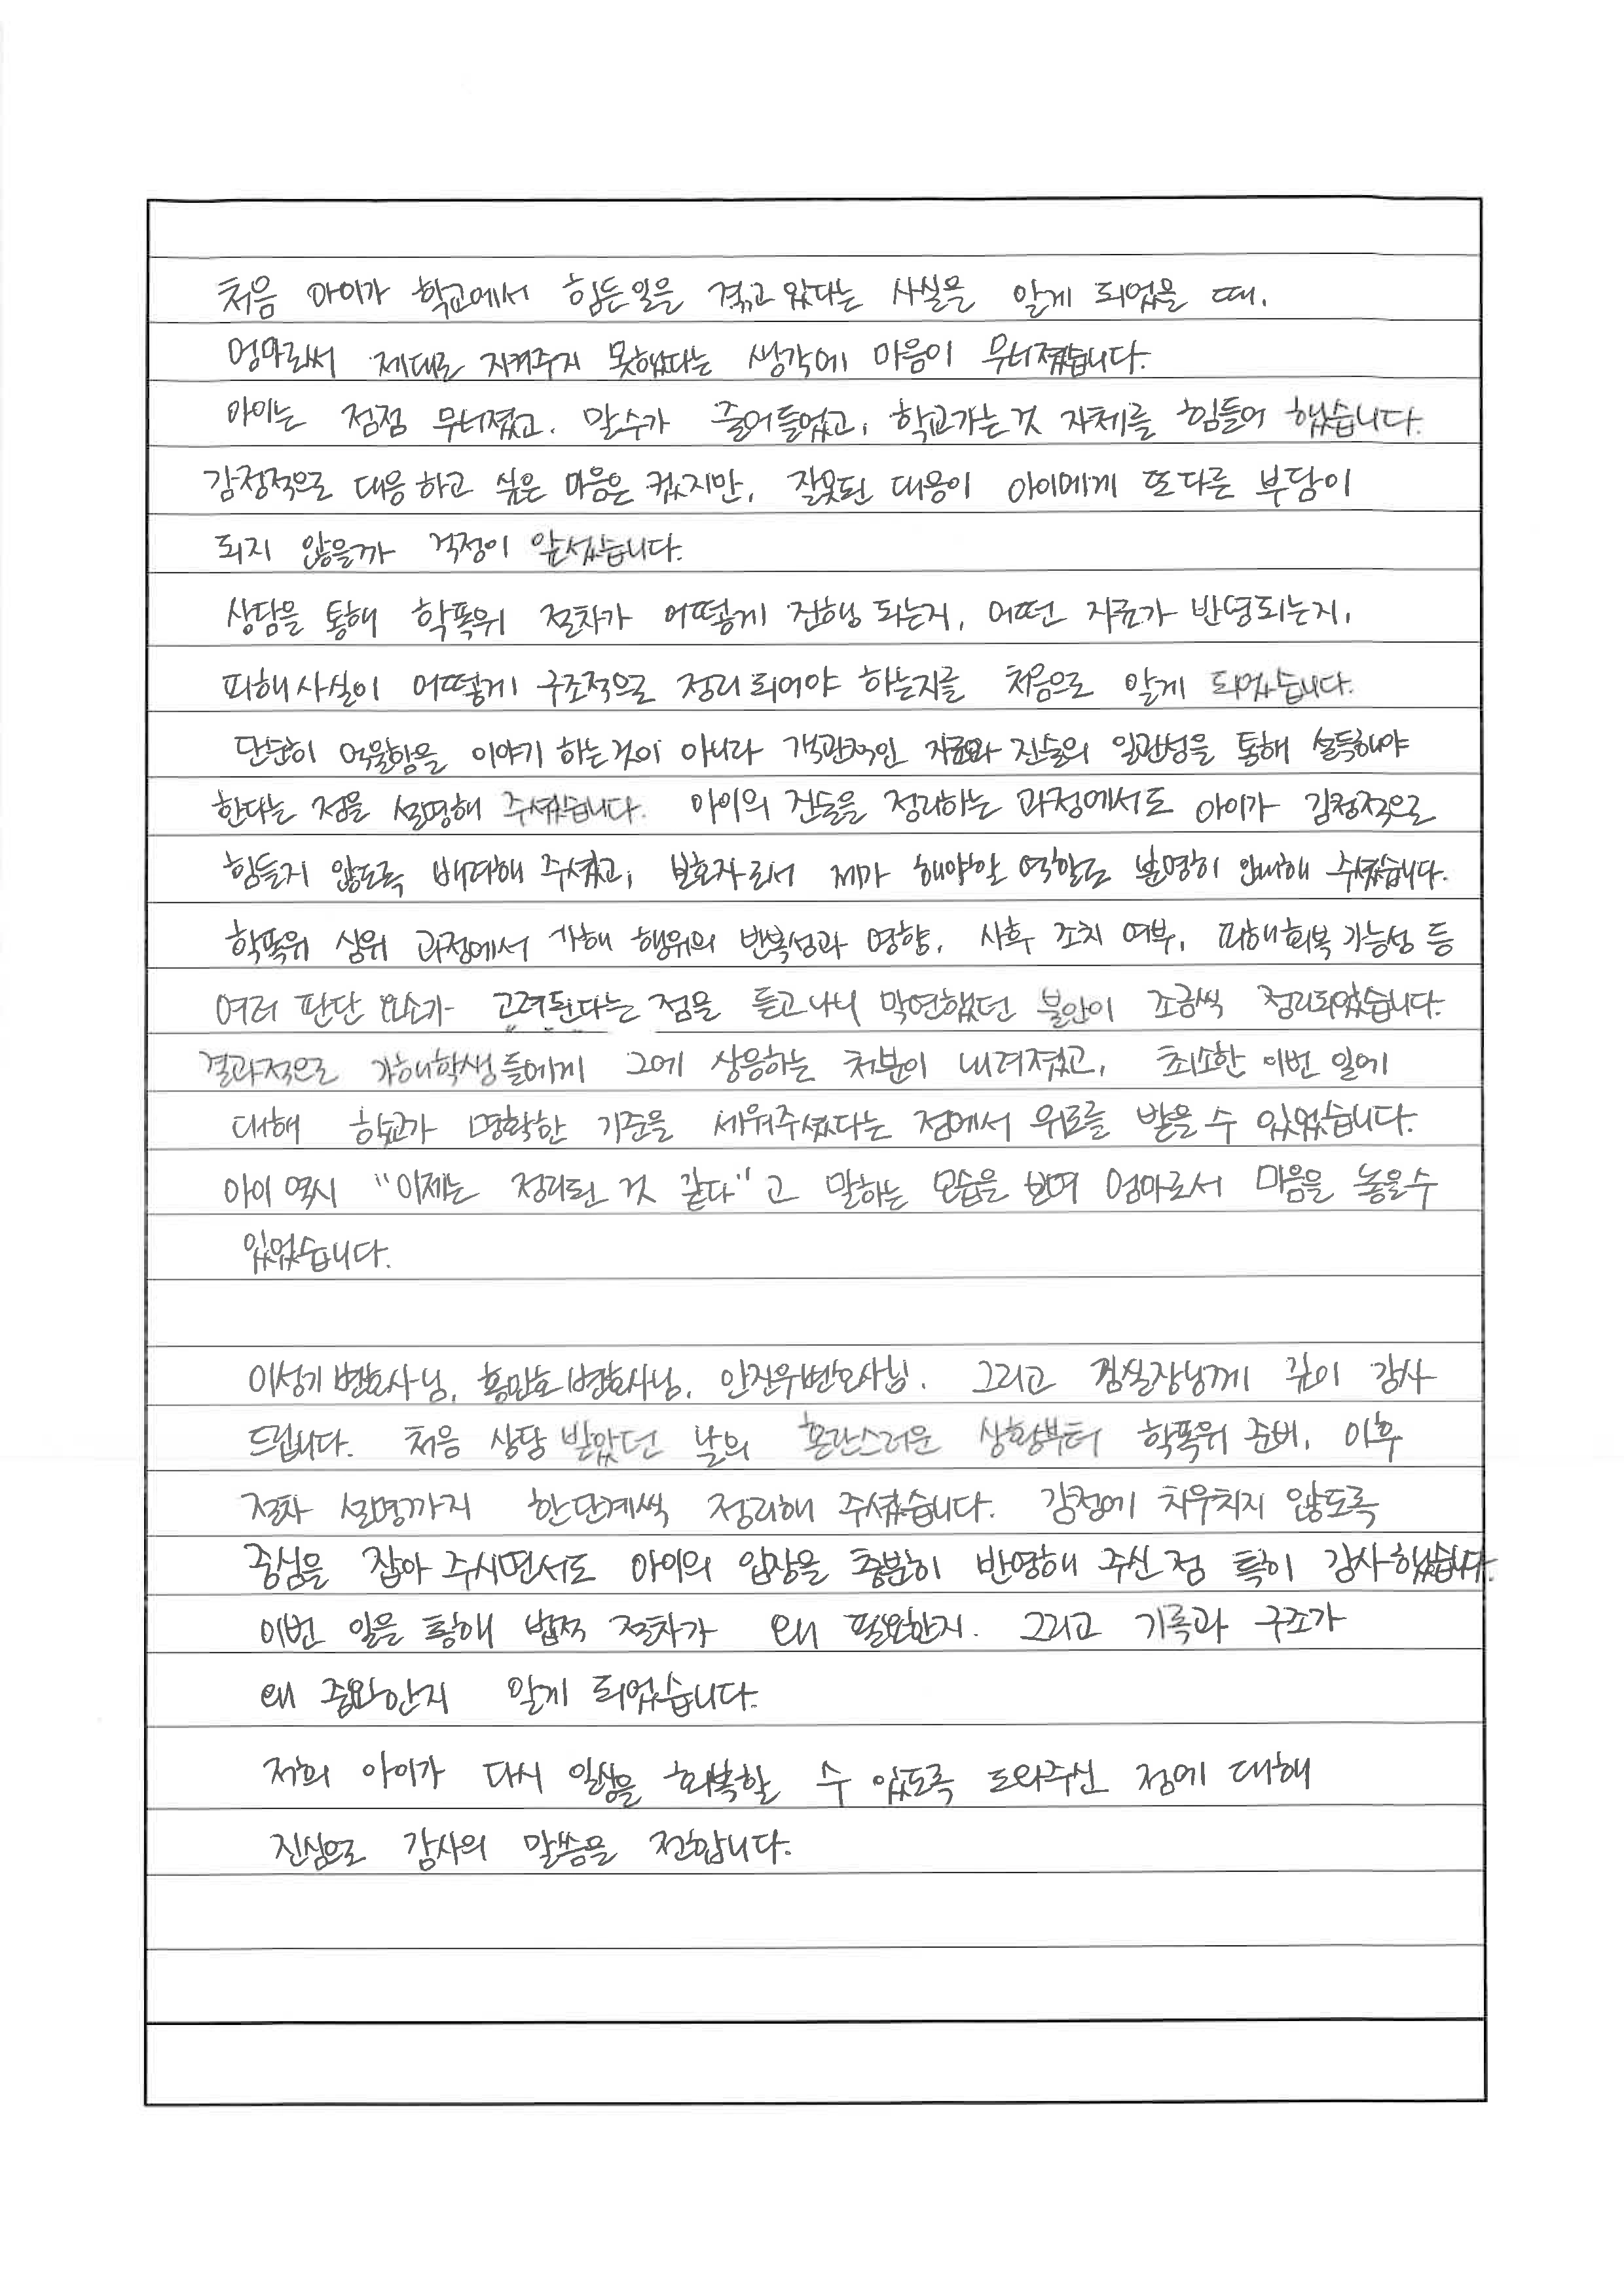 처음 아이가 학교에서 힘든일을 겪고 있다는 사실을 알게 되었을 때,
엄마로써 제대로 지켜주지 못했다는 생각에 마음이 무너졌습니다.
아이는 점점 무너졌고, 말수가 줄어들었고, 학교가는것 자체를 힘들어 했습니다.
감정적으로 대응하고 싶은 마음은 컸지만, 잘못된 대응이 아이에게 또다른 부담이
되지 않을까 걱정이 앞섰습니다.
상담을 통해 학폭위 절차가 어떻게 진행 되는지, 어떤 자료가 반영되는지,
피해사실이 어떻게 구조적으로 정리되어야 하는지를 처음으로 알게 되었습니다.
단순히 억울함을 이야기 하는것이 아니라 객관적인 자료와 진술의 일관성을 통해 설득해야
한다는 점을 설명해 주셨습니다. 아이의 진술을 정리하는 과정에서도 아이가 감정적으로
힘들지 않도록 배려해 주셨고, 보호자로서 제가 해야할 역할도 분명히 안내해 주셨습니다.
학폭위 심위 과정에서 가해 행위의 반복성과 영향, 사후 조치 여부, 피해회복 가능성 등
여러 판단 요소가 고려된다는 점을 듣고나니 막연했던 불안이 조금씩 정리되었습니다.
결과적으로 가해학생들에게 그에 상응하는 처분이 내려졌고, 최소한 이번 일에
대해 학교가 명확한 기준을 세워주셨다는 점에서 위로를 받을 수 있었습니다.
아이 역시 "이제는 정리된 것 같다"고 말하는 모습을 보며 엄마로서 마음을 놓을수
있었습니다.
이성기변호사님, 홍민호변호사님, 안진우변호사님, 그리고 김실장님께 깊이 감사
드립니다. 처음 상담 받았던 날의 혼란스러운 상황부터 학폭위 준비, 이후
절차 설명까지 한단계씩 정리해 주셨습니다. 감정에 치우치지 않도록
중심을 잡아 주시면서도 아이의 입장을 충분히 반영해 주신 점 특히 감사했습니다.
이번 일을 통해 법적 절차가 왜 필요한지, 그리고 기록과 구조가
왜 중요한지 알게 되었습니다.
저희 아이가 다시 일상을 회복할 수 있도록 도와주신 점에 대해
진심으로 감사의 말씀을 전합니다.